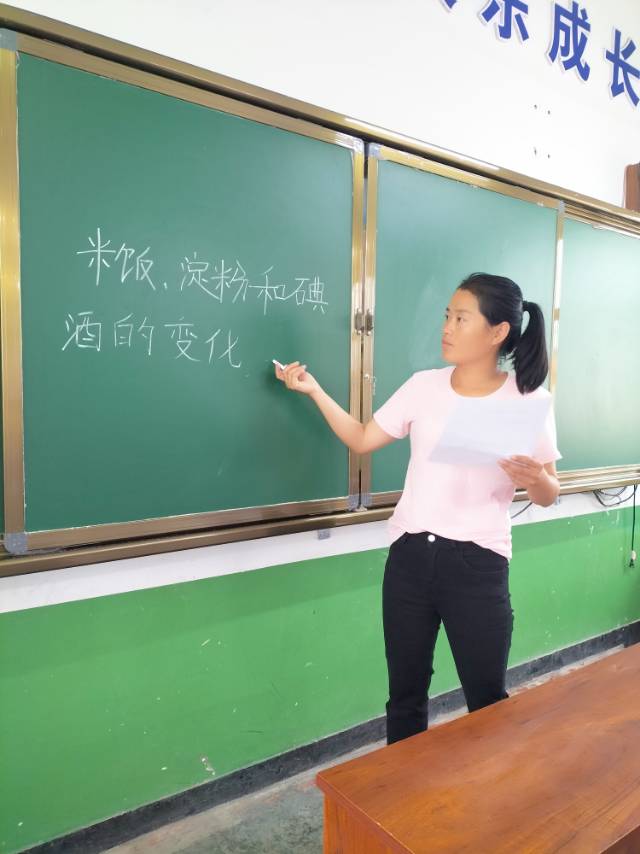 乐成长
米饭、淀粉和碘
酒的变化